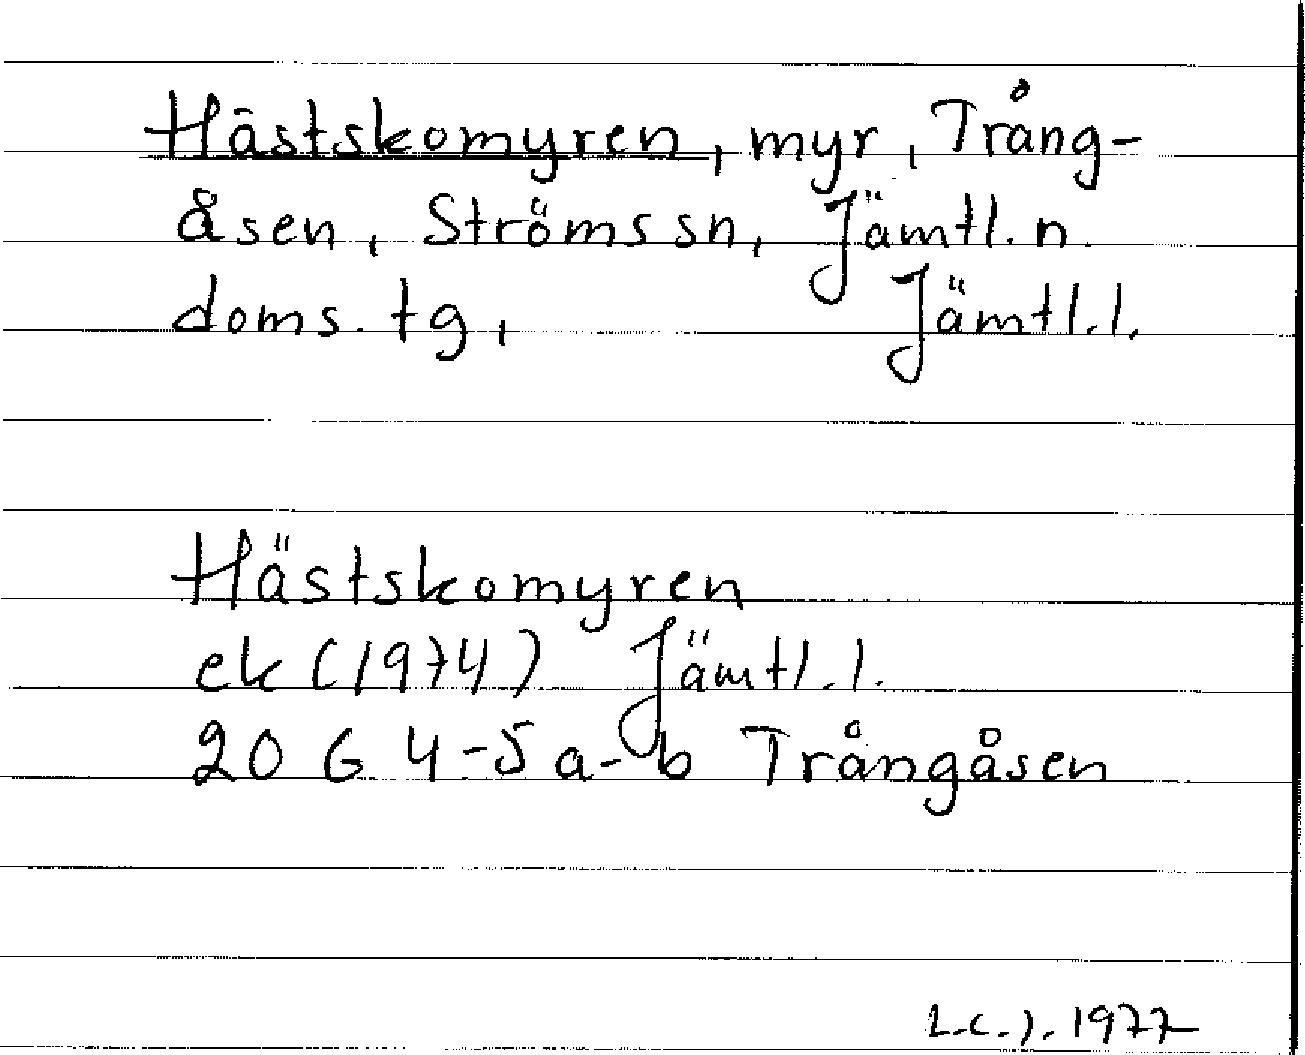 Hästskomyren, myr, Trång-
åsen, Ströms sn, Jämtl. n.
doms. tg, Jämtl. l.
Hästskomyren
ek (1974) Jämtl. l.
20 G 4-5 a-b Trångåsen
1977